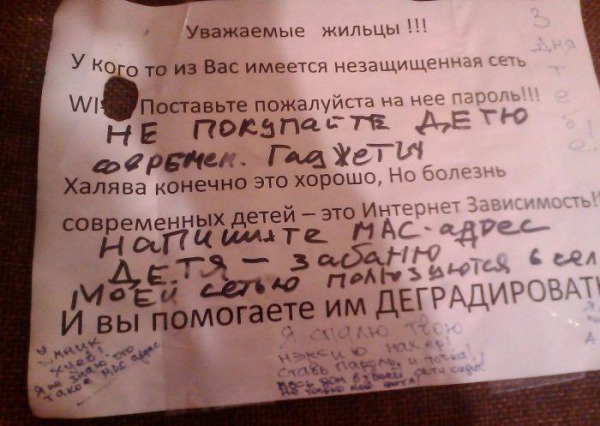 Уважаемые жильцы !!!
З
дня
тебе
У кого то из Вас имеется незащищенная сеть
WI Поставьте пожалуйста на нее пароль!!!
НЕ ПОКУПАЙТЕ ДЕТЮ
СОВРЕМЕН. ГАДЖЕТЫ
Халява конечно это хорошо, Но болезнь
современных детей – это Интернет Зависимость!
НАПИШИТЕ MAC-АДРЕС
ДЕТЯ – ЗАБАНЮ
МОЕЙ СЕТЬЮ ПОЛЬЗУЮТСЯ 6 СЕМ
И вы помогаете им ДЕГРАДИРОВАТЬ
У
мник
хуев!
Я не знаю что
такое MAC адрес
Я спалю твою
нахер!
Ставь пароль и точка!
Весь дом в твоей сети сидит
Не только мой